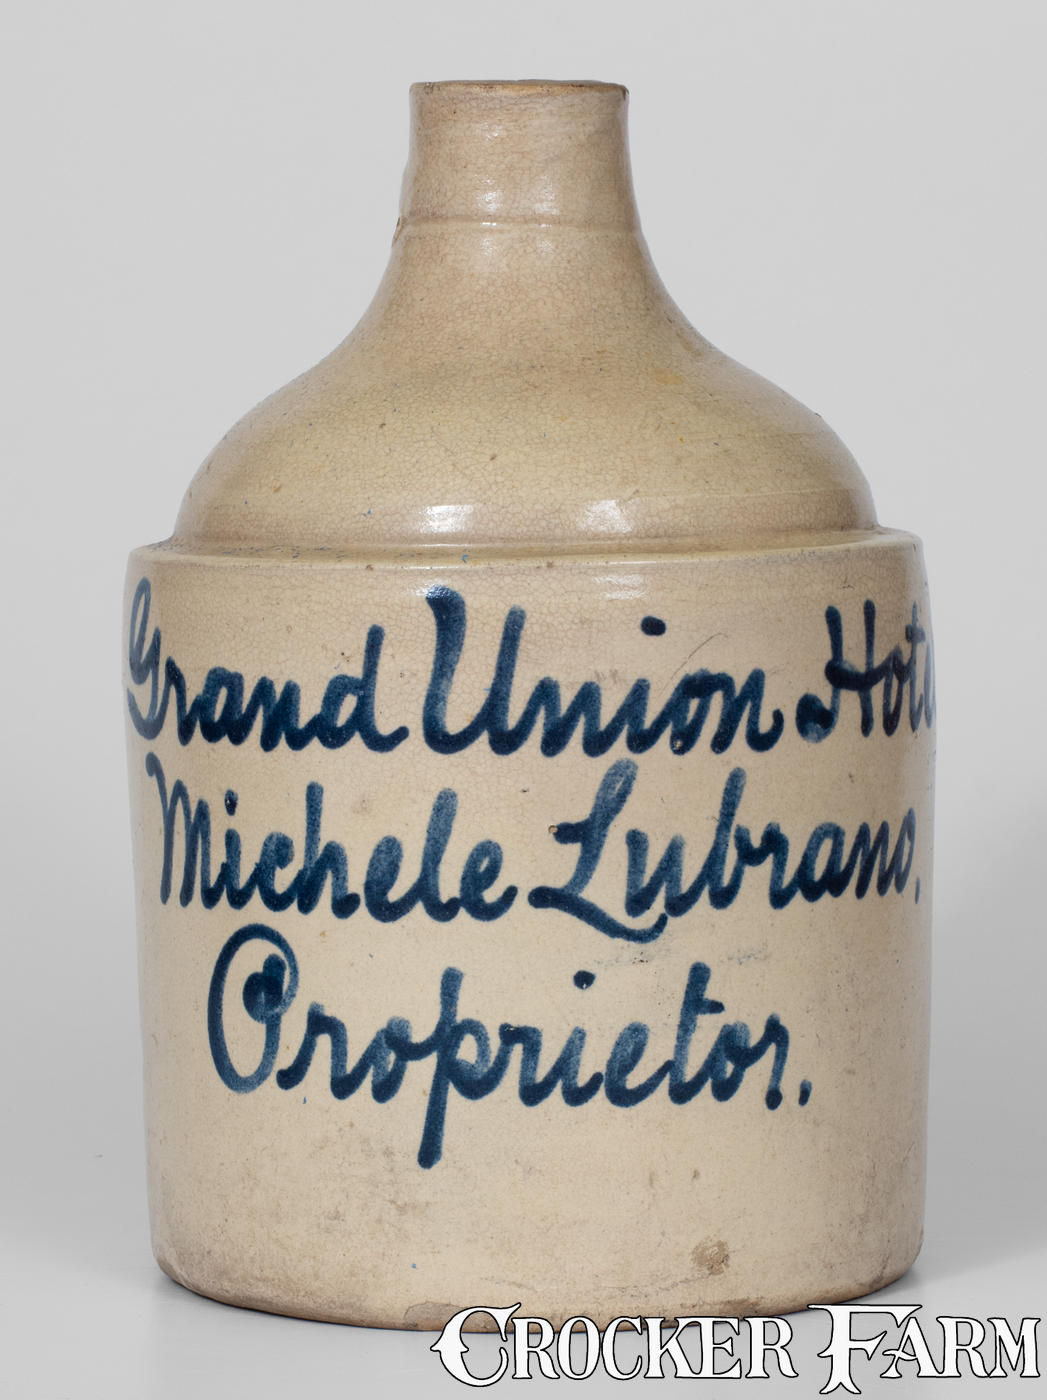 Grand Union Hote
Michele Lubrano,
Proprietor.
CROCKER FARM